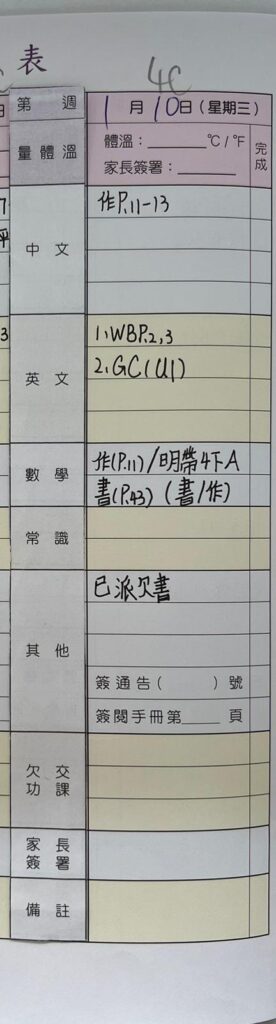 表
4C
第 週
1月10日(星期三)
量體溫
體溫：______℃/℉
家長簽署：______
完成
中文
作P.11-13
英文
1、WBP.2,3
2、GC(U1)
數學
作(P.11)/明帶4下A
書(P.43)(書/作)
常識
其他
已派欠書
簽通告( )號
簽閱手冊第____頁
欠交功課
家長簽署
備註